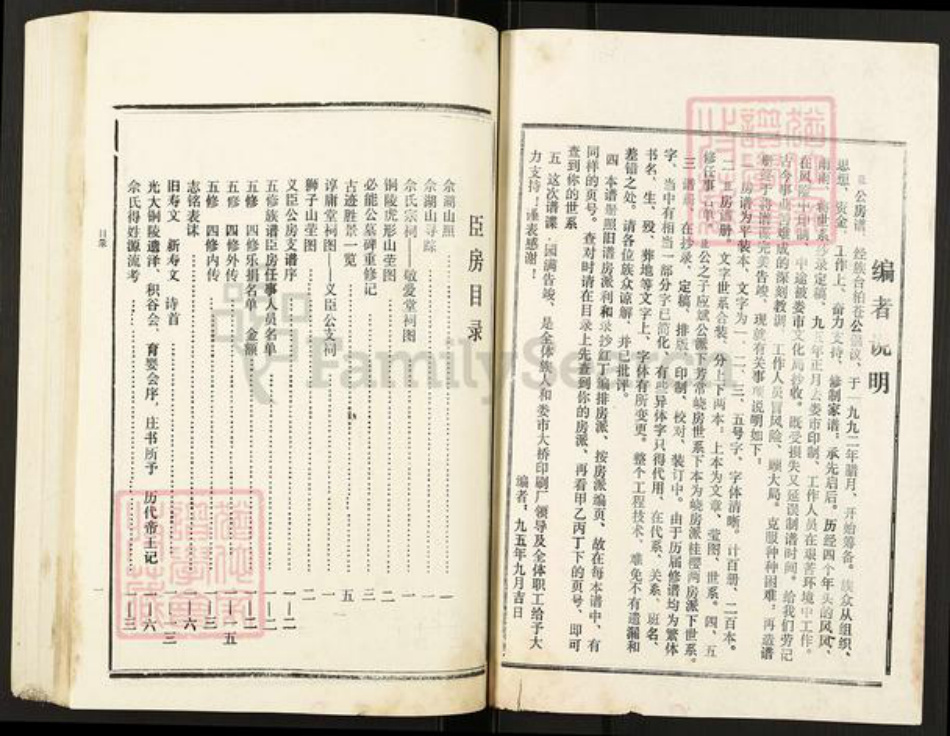 编者说明
公房谱、经族台拍苍公倡议、于一九九二年腊月、开始筹备。族众从组织、
思想、资金、工作上、奋力支持、修制家谱。承先启后。历经四个年头的风风、
雨雨、将世系抄录定稿、九 年正月去娄市印制、工作人员在艰苦环境中工作。
在风险中印制、中途被娄市文化局抄收。既受损失又延误制谱时间。给我们劳记
古今事业善难成的深刻教训、工作人员冒风险、顾大局。克服种种困难，再造谱
终于将谱牒完美告竣、现就有关事项说明如下。
一、 房谱为平装本、文字为一、二、三、五号字、字体清晰。计百册、二百本。
二、 房谱册。文字世系合装、分上下两本，上本为文章、茔图、世系。四、五
修任事名单、 公之子应斌公派下芳常峣房世系下本为峣房派桂樱两房派下世系。
三 谱牒、在抄录、定稿、排版、印制、校对、装订中。由于历届修谱均为繁体
字、当中有相当一部分字已简化、有些异体字只得代用、在代系、关系、班名、
书名、生、殁、葬地等文字上、字体有所变更。整个工程技术、难免不有遗漏和
差错之处。请各位族众谅解、并已批评。
四 本谱照旧谱房派利和录沙红丁编排房派、按房派编页、故在每本谱中、有
同样的页号。查对时请在目录上先查到你的房派、再看甲乙丙丁下的页号、即可
查到你的世系
五、这次谱牒，园满告竣、是全体族人和娄市大桥印刷厂领导及全体职工给予大
力支持！谨表感谢！
编者，九五年九月吉日
臣房目录
佘湖山照……一
佘湖山寻踪……一
佘氏宗祠——敬爱堂祠图……一
铜陵虎形山茔图……二
必能公墓碑重修记……三
古迹胜景一览……五
谆庸堂祠图——义臣公支祠……一
狮子山茔图……二
义臣公房支谱序……一—二
五修族谱臣房任事人员名单……一
五修 四修乐捐名单 金额……一—三
五修 四修外传……一—二五
五修 四修内传……一—三
志铭表诔……一—六
旧寿文 新寿文 诗首……一—一三
光大铜陵遗泽、积谷会、育婴会序、庄书所予 历代帝王记……一—六
佘氏得姓源流考……一—三
目录
一
FamilySearch